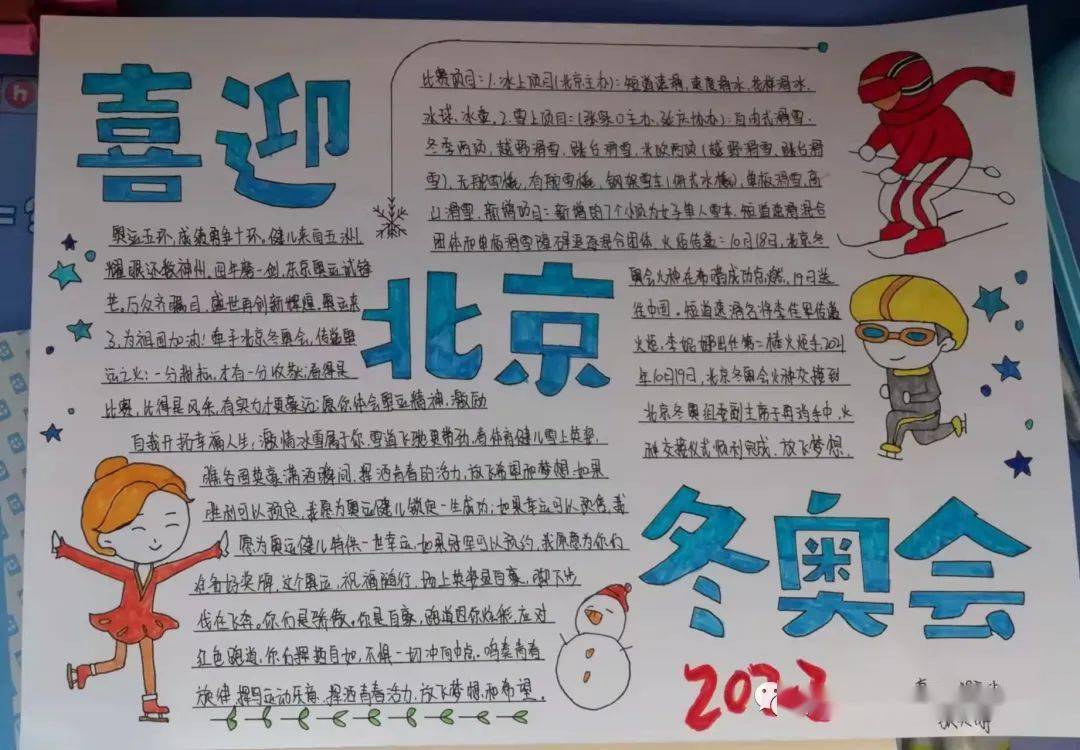 喜迎
北京
冬奥会
比赛项目:1.冰上项目(北京主办):短道速滑,速度滑冰,花样滑冰,
冰球,冰壶,2.雪上项目:(张家口主办,延庆协办):自由式滑雪,
冬季两项,越野滑雪,跳台滑雪,北欧两项(越野滑雪,跳台滑
雪),无舵雪橇,有舵雪橇,钢架雪车(俯式冰橇),单板滑雪,高
山滑雪,新增项目:新增的7个小项为女子单人雪车,短道速滑混合
团体和单板滑雪障碍追逐混合团体,火炬传递:10月18日,北京冬
奥会火种在希腊成功点燃,19日送
往中国。短道速滑名将李佳军传递
火炬,李妮娜出任第二棒火炬手,2021
年10月19日,北京冬奥会火种交接到
北京冬奥组委副主席于再清手中,火
种交接仪式顺利完成,放飞梦想.
奥运五环,成绩勇争十环。健儿来自五洲,
耀眼还数神州,四年磨一剑,东京奥运试锋
芒。万众齐瞩目,盛世再创新辉煌。奥运来
了,为祖国加油!牵手北京冬奥会,传递奥
运之火:一分耕耘,才有一分收获;看得是
比赛,比得是风采,有实力才更豪迈:愿你体会奥运精神,激励
自我开拓幸福人生,激情冰雪属于你,雪道飞驰
瞧各国英豪潇洒瞬间,挥洒青春的活力,放飞希望和梦想.如果
胜利可以预定,我愿为奥运健儿锁定一生成功;如果幸运可以预售,我
愿为奥运健儿特供一世幸运,如果冠军可以预约,我愿意为你们
准备好奖牌,这个奥运,祝福随行,场上英姿显自豪,脚下步
伐在飞奔。你们是骄傲。你是自豪,跑道因你炫彩,应对
红色跑道,你们挥洒自如,不惧一切冲向终点。鸣奏青春
旋律,挥写运动乐章,挥洒青春活力,放飞梦想和希望。